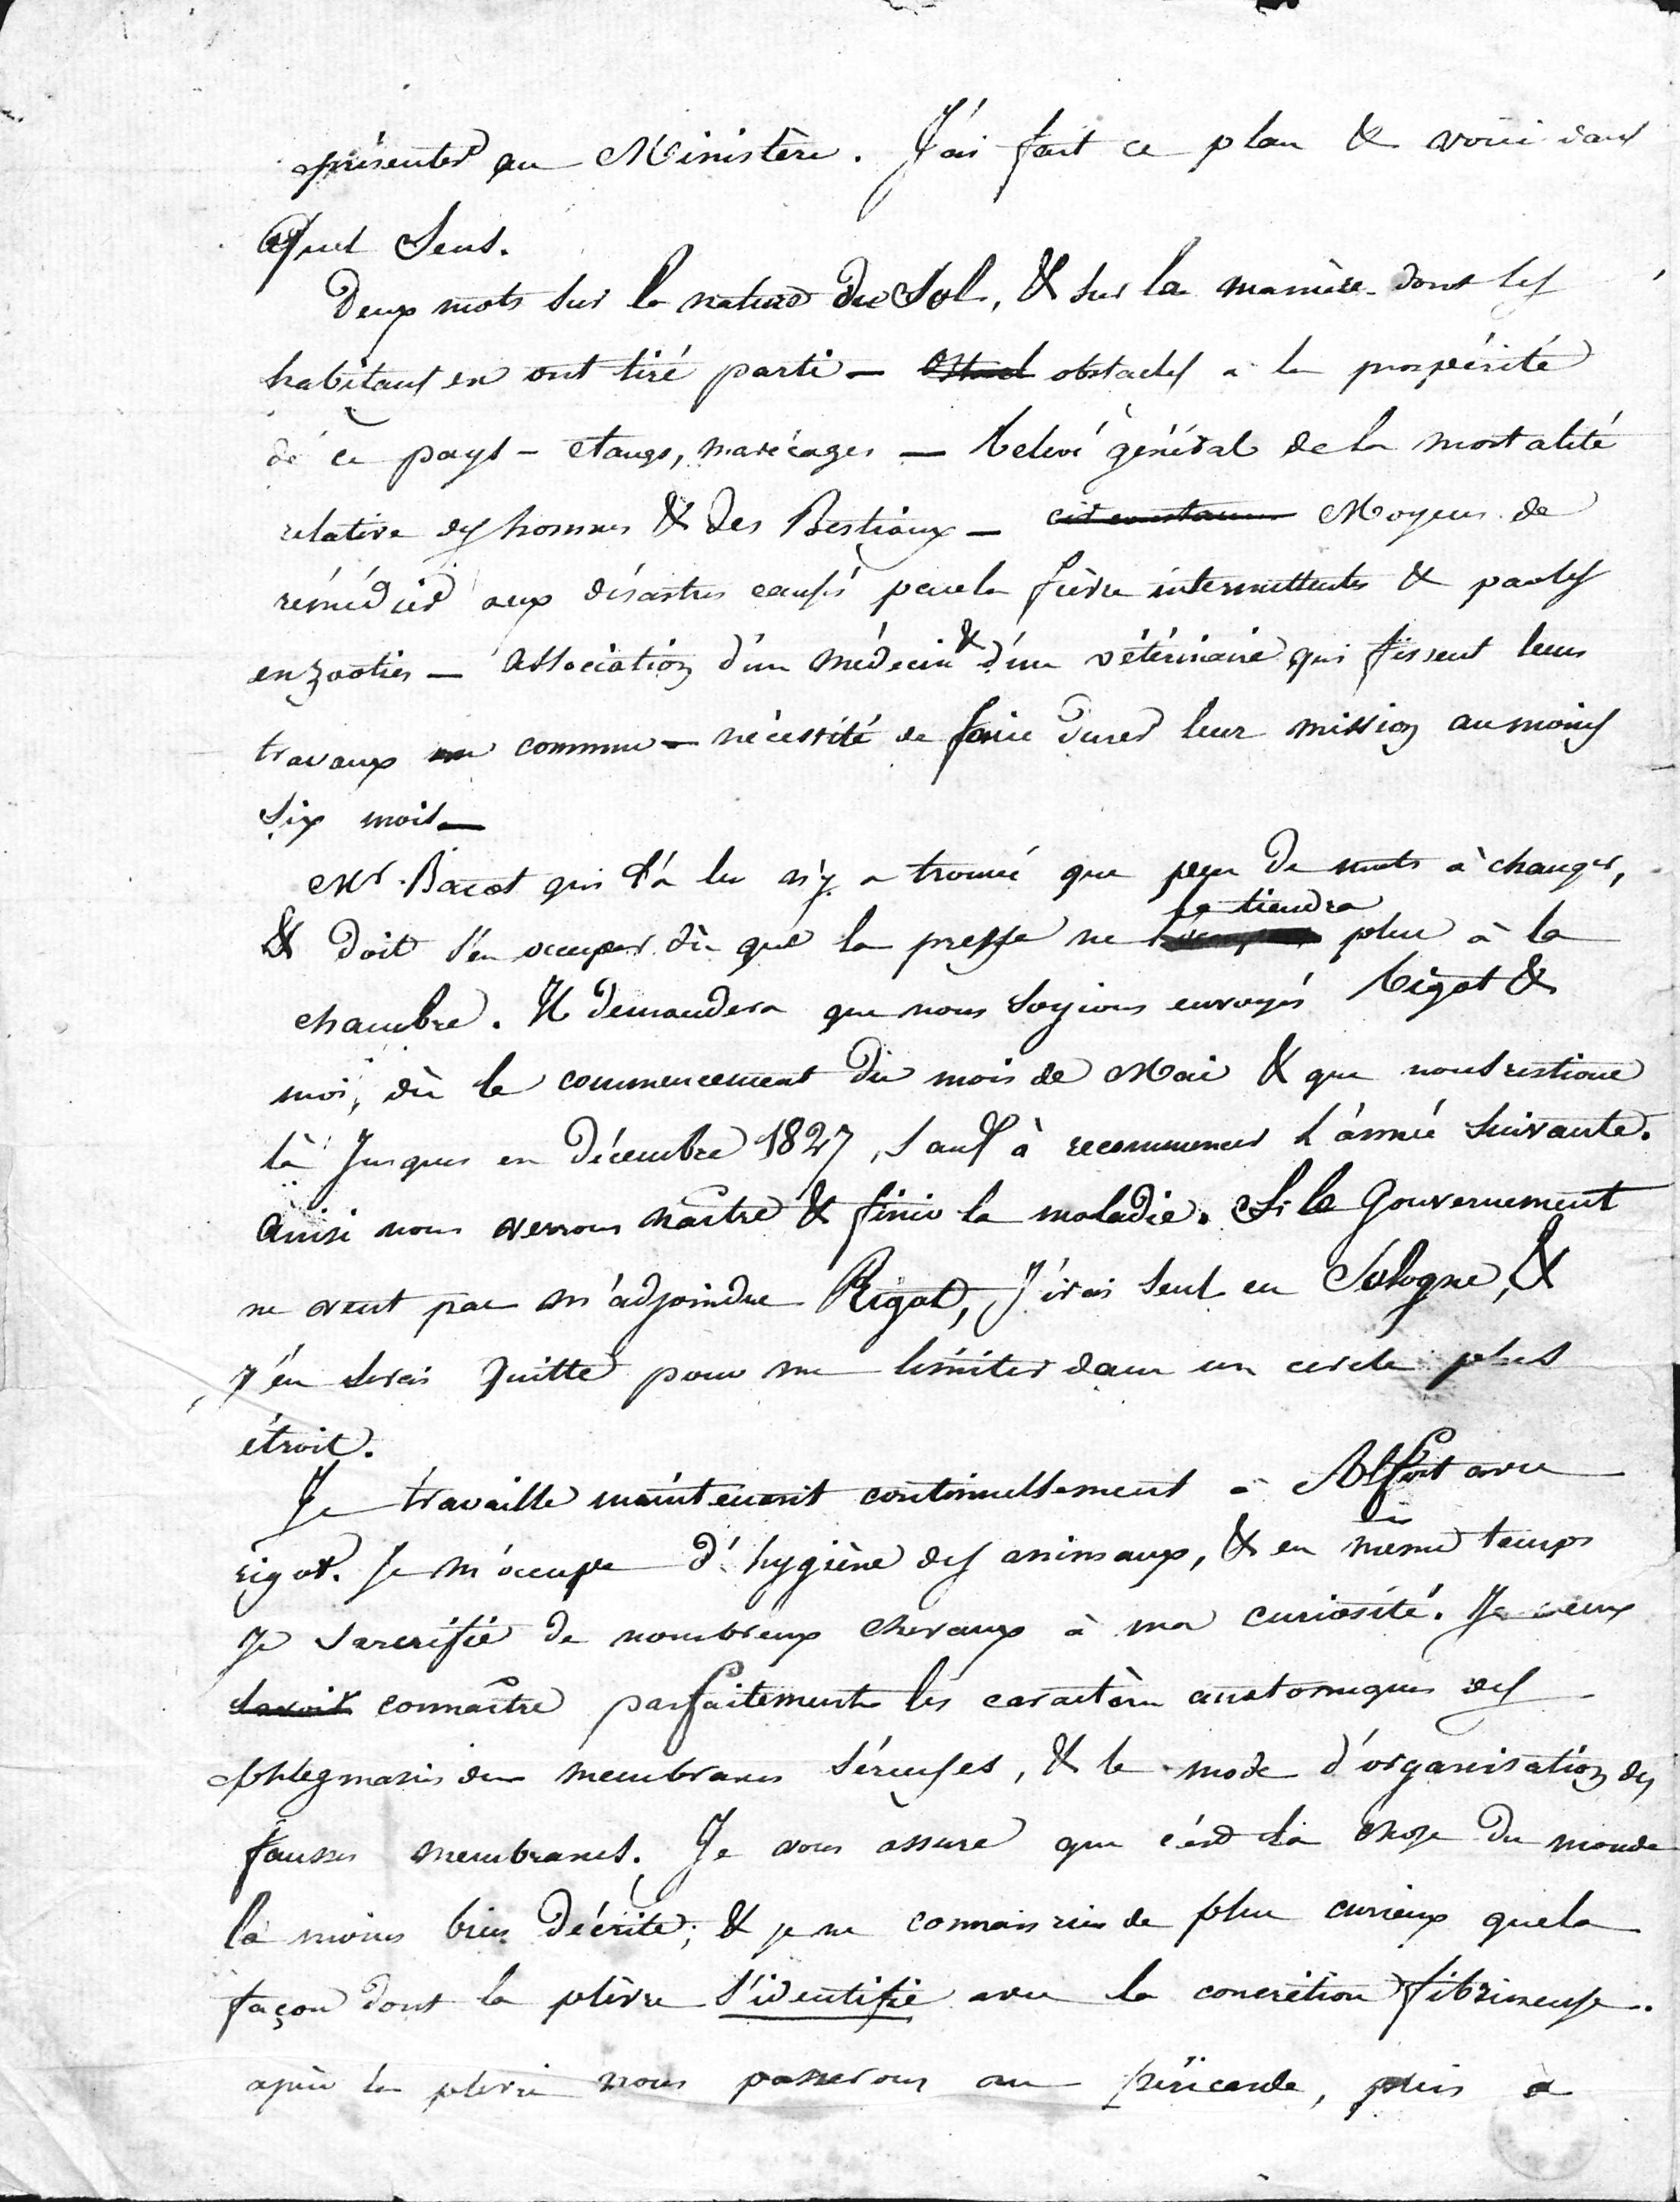 présenter au Ministère. J'ai fait ce plan & voici dans
quel sens.
Deux mots sur la nature du sol, & sur la manière dont les
habitans en ont tiré parti — obstacles à la prospérité
de ce pays — étangs, marécages — Relevé général de la mortalité
relative des hommes & des Bestiaux — circonstances Moyens de
rémédier aux désastres causés par la fièvre intermittente & par les
enzooties — Association d'un médecin & d'un vétérinaire qui fissent leurs
travaux en commun — nécessité de faire durer leur mission au moins
six mois —
Mr. Bacot qui l'a lu n'y a trouvé que peu de mots à changer,
& doit s'en occuper dès que la presse ne le tiendra plus à la
chambre. Il demandera que nous soyions envoyés Rigot &
moi, dès le commencement du mois de Mai & que nous restions
là jusques en Décembre 1827, sauf à recommencer l'année suivante.
Ainsi nous verrons naître & finir la maladie. Si le Gouvernement
ne veut pas m'adjoindre Rigot, J'irai seul en Sologne, &
j'en serai quitte pour me limiter dans un cercle plus
étroit.
Je travaille maintenant continuellement à Alfort avec
rigot. Je m'occupe d'hygiène des animaux, & en même temps
je sacrifie de nombreux chevaux à ma curiosité. Je veux
savoir connaître parfaitement les caractères anatomiques des
phlegmasies des membranes séreuses, & le mode d'organisation des
fausses membranes. Je vous assure que c'est la chose du monde
la moins bien décrite; & je ne connais rien de plus curieux que la
façon dont la plèvre s'identifie avec la concrétion fibrineuse.
après la plèvre nous passerons au péricarde, puis à